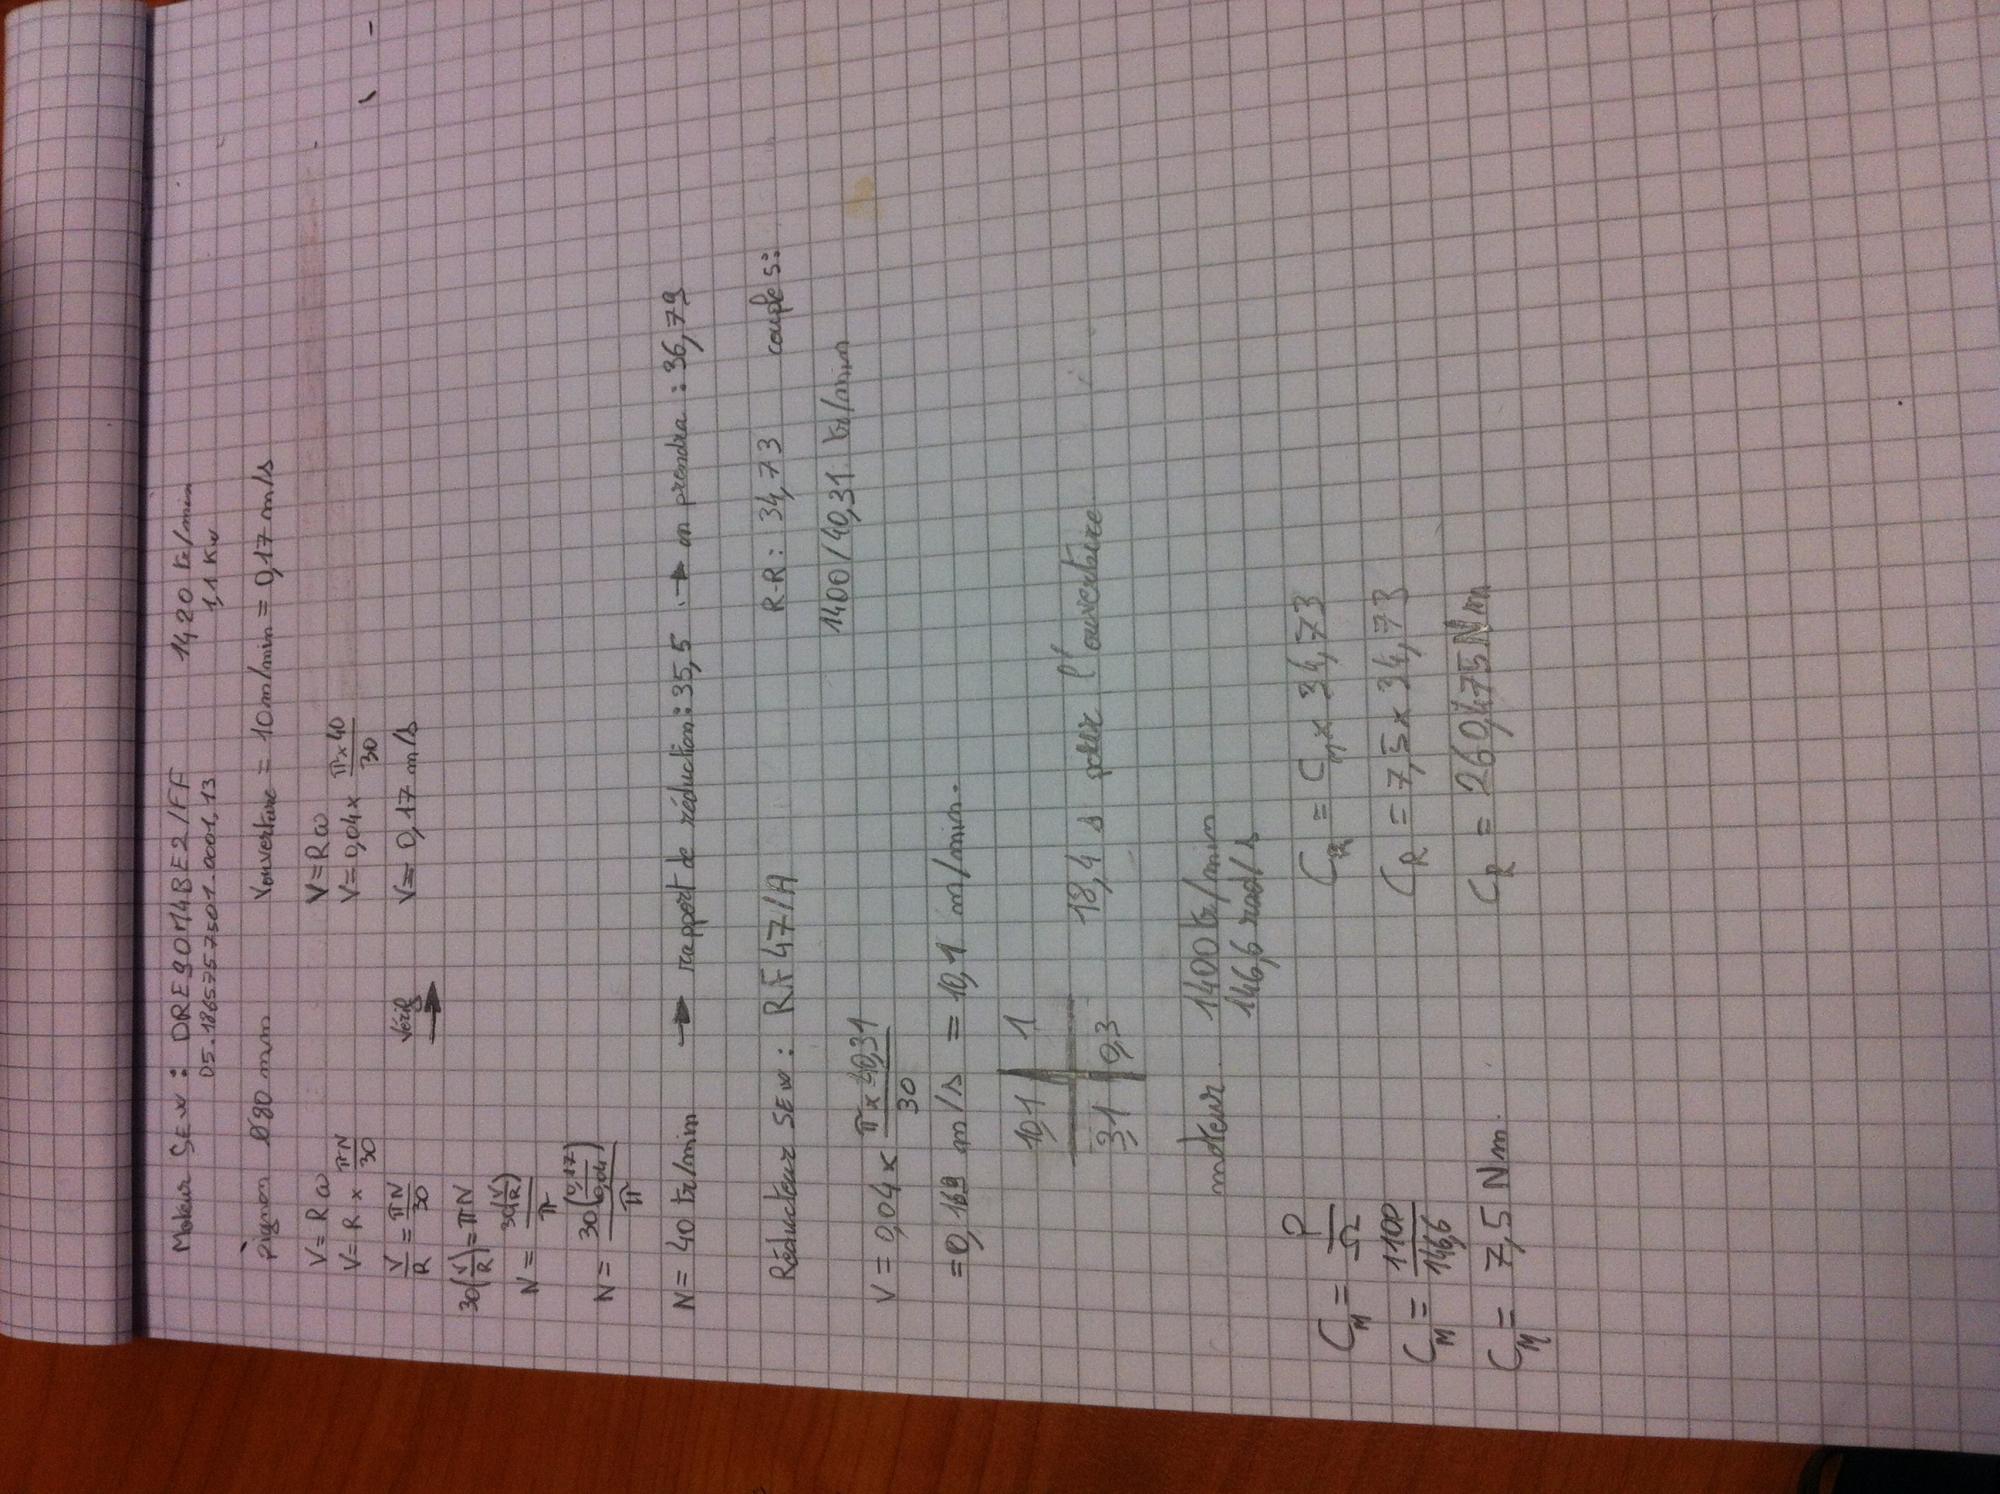 Moteur SEW : DRE90M4BE2/FF 1420 tr/min
05.1865757501.0001.13 1,1 Kw
pignon Ø80 mm Vouverture = 10m/min = 0,17 m/s
V = R ω
V = R × πN/30
V/R = πN/30
30(V/R) = πN
N = 30(V/R)/π
N = 30(0,17/0,04)/π
vérif →
V = R ω
V = 0,04 × π×40/30
V = 0,17 m/s
N = 40 tr/min → rapport de réduction : 35,5 → on prendra : 36,79
Réducteur SEW : RF47/A R-R : 34,73 couples :
1400/40,31 tr/min
V = 0,04 × π×40,31/30
= 0,169 m/s = 10,1 m/min.
10,1 | 1
3,1 | 0,3
18,4 s pour l'ouverture
moteur 1400 tr/min
146,6 rad/s
C_M = P/Ω
C_M = 1100/146,6
C_M = 7,5 Nm.
C_R = C_M × 34,73
C_R = 7,5 × 34,73
C_R = 260,475 Nm